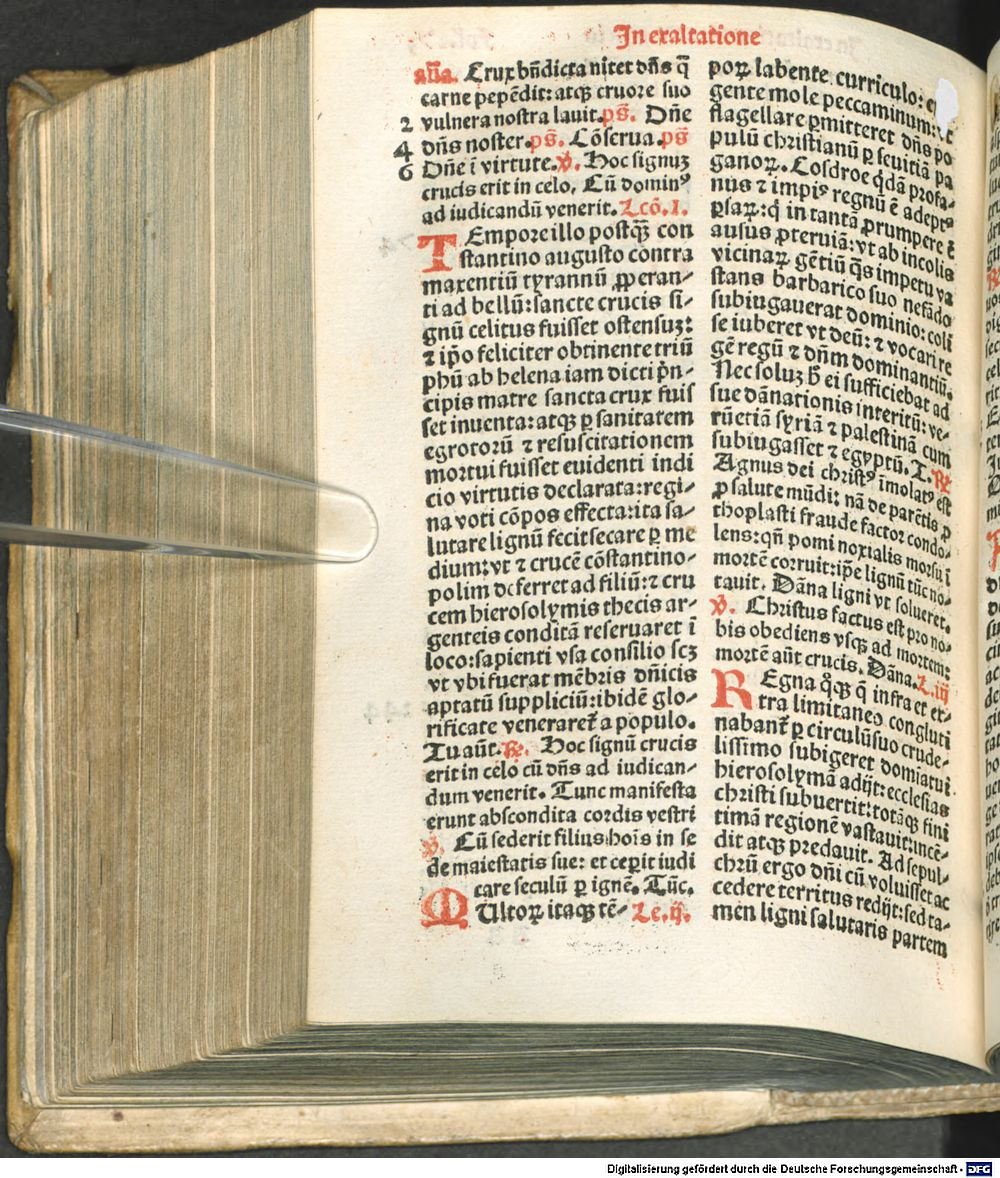 In exaltatione
añа. Crux bn̄dicta nitet dn̄s q̄
carne pepēdit: atqꝫ cruore suo
2 vulnera nostra lauit. ps̄. Dn̄e
4 dn̄s noster. ps̄. Cōserua. ps̄
6 Dn̄e ī virtute. v̄. Hoc signuꝫ
crucis erit in celo. Cū dominꝰ
ad iudicandū venerit. Lcō. 1.
TEmpore illo postqꝫ̄ con
stantino augusto contra
maxentiū tyrannū ꝓperan-
ti ad bellū: sancte crucis si-
gnū celitus fuisset ostensuꝫ:
⁊ ip̄o feliciter obtinente triū
phū ab helena iam dicti p̄n-
cipis matre sancta crux fuis
set inuenta: atqꝫ ꝑ sanitatem
egrotorū ⁊ resuscitationem
mortui fuisset euidenti indi
cio virtutis declarata: regi-
na voti cōpos effecta: ita sa-
lutare lignū fecit secare ꝑ me
dium: vt ⁊ crucē cōstantino-
polim deferret ad filiū: ⁊ cru
cem hierosolymis thecis ar-
genteis conditā reseruaret ī
loco: sapienti vsa consilio scꝫ
vt vbi fuerat mēbris dn̄icis
aptatū suppliciū: ibidē glo-
rificate veneraret̄ a populo.
Tu aūt. R̄. Hoc signū crucis
erit in celo cū dn̄s ad iudican-
dum venerit. Tunc manifesta
erunt abscondita cordis vestri
v̄. Cū sederit filius hoīs in se
de maiestatis sue: et ceperit iudi
care seculū ꝑ ignē. Tūc.
MUltoꝝ itaqꝫ tē- Le. ij.
poꝝ labente curriculo:
gente mole peccaminum: vt
flagellare ꝑmitteret dn̄s po
pulū christianū ꝑ seuitiā pa
ganoꝝ. Cosdroe q̄dā profa-
nus ⁊ impiꝰ regnū ē adeptꝰ
ꝑsaꝝ: q̄ in tantā ꝓrumpere ē
ausus ꝓteruiā: vt ab incolis
vicinaꝝ gētiū q̄s impetu va
stans barbarico suo nefādo
subiugauerat dominio: coli
se iuberet vt deū: ⁊ vocari re
gē regū ⁊ dn̄m dominantiū.
Nec soluꝫ h̄ ei sufficiebat ad
sue dānationis interitū: ve-
rū etiā syriā ⁊ palestinā cum
subiugasset ⁊ egyptū. T. R̄
Agnus dei christꝰ īmolatꝰ est
ꝓ salute mūdi: nā de parētis ꝓ
thoplasti fraude factor condo-
lens: qn̄ pomi noxialis morsu ī
mortē corruit: ip̄e lignū tūc no-
tauit. Dāna ligni vt solueret.
v̄. Christus factus est pro no-
bis obediens vsqꝫ ad mortem:
mortē aūt crucis. Dāna. L. iij
REgna qꝫ q̄ infra et ex-
tra limitaneo congluti
nabant̄ ꝑ circulū suo crude-
lissimo subigeret domīatui
hierosolymā adijt: ecclesias
christi subuertit: totāqꝫ fini
timā regionē vastauit: incē-
dit atqꝫ predauit. Ad sepul-
chrū ergo dn̄i cū voluisset ac
cedere territus redijt: sed ta-
men ligni salutaris partem
Digitalisierung gefördert durch die Deutsche Forschungsgemeinschaft - DFG